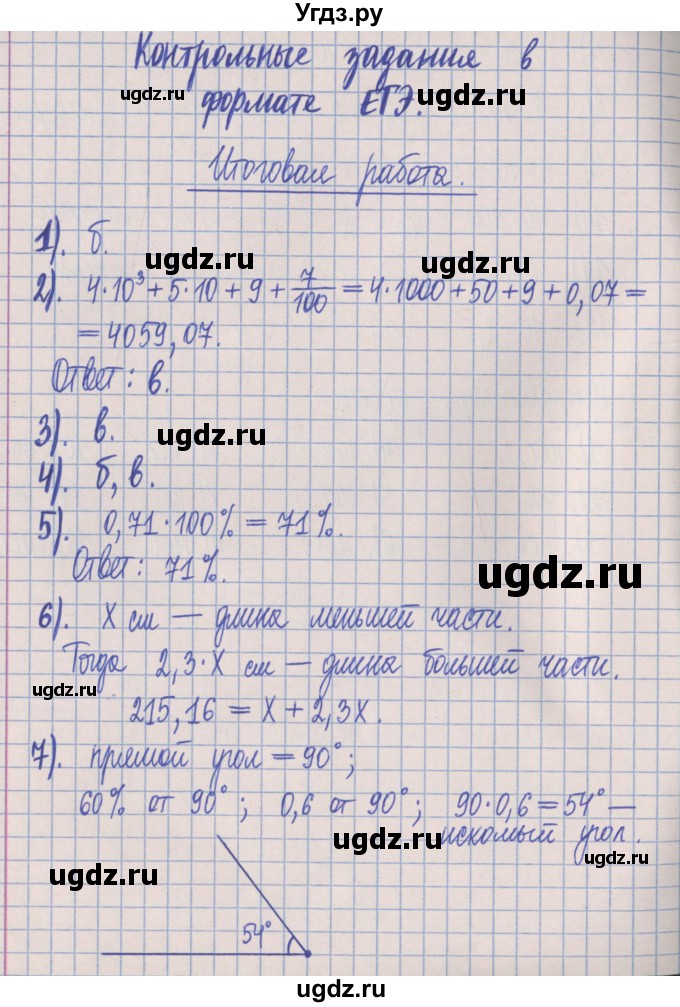 Угдз.ру
Контрольные задания в
ugdz.ru ugdz.ru
формате ЕГЭ.
Итоговая работа.
1). б.
ugdz.ru ugdz.ru
2). 4·10³+5·10+9+7/100=4·1000+50+9+0,07=
=4059,07.
Ответ: в.
3). в.
ugdz.ru
4). б, в.
5). 0,71·100%=71%.
Ответ: 71%.
ugdz.ru
6). X см — длина меньшей части.
Тогда 2,3·X см — длина большей части.
ugdz.ru
215,16 = X + 2,3X.
7). прямой угол = 90°;
60% от 90°; 0,6 от 90°; 90·0,6=54°—
искомый угол.
ugdz.ru ugdz.ru
ugdz.ru
54°
ugdz.ru